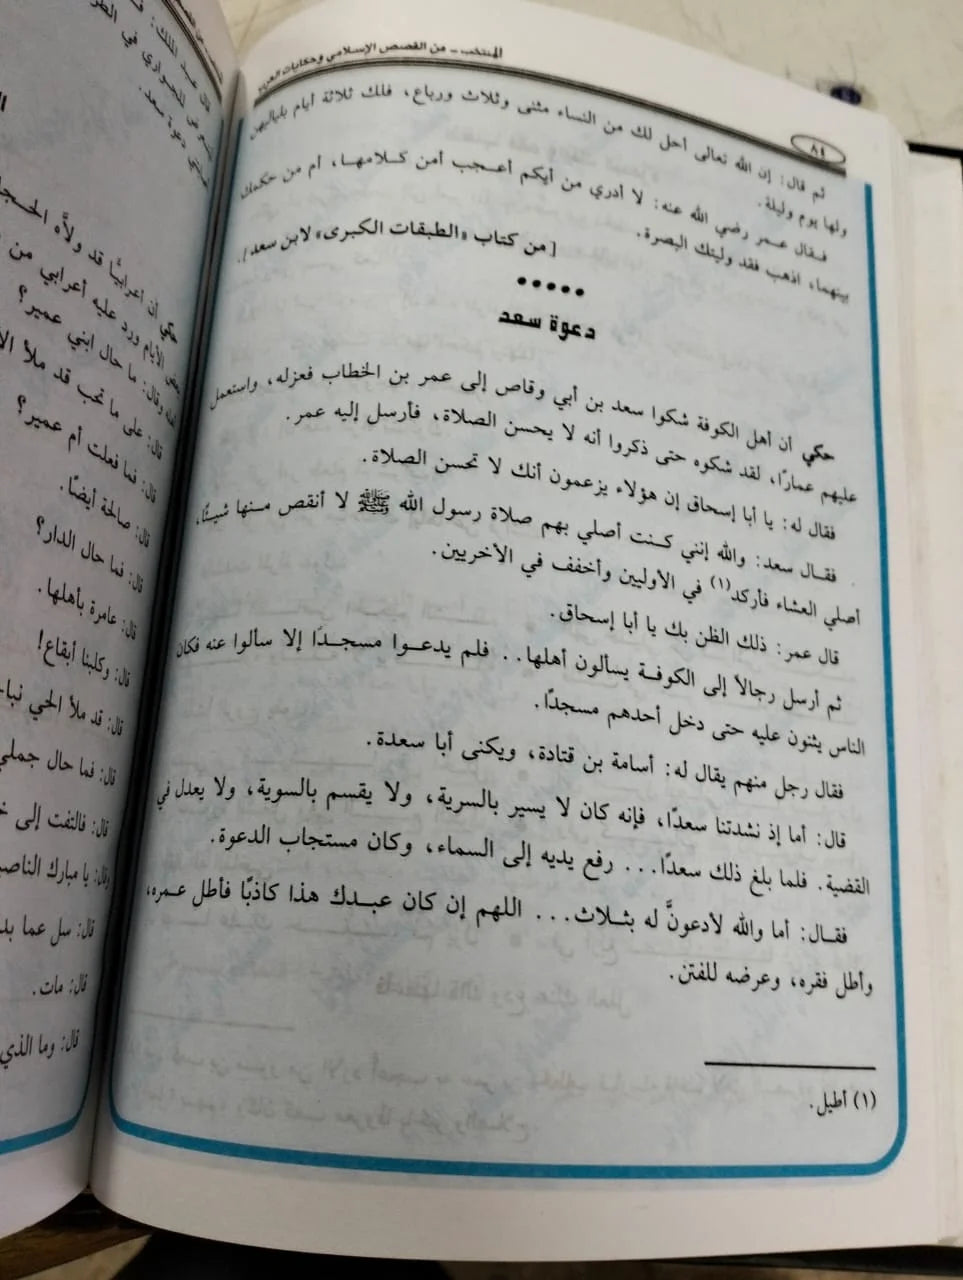 المنتخب – من القصص الإسلامي وحكايات العرب
٨٤
ثم قال: إن الله تعالى أحل لك من النساء مثنى وثلاث ورباع، فلك ثلاثة أيام بلياليهن
ولها يوم وليلة.
فقال عمر رضي الله عنه: لا أدري من أيكم أعجب أمن كلامها، أم من حكمك
بينهما، اذهب فقد وليتك البصرة.
[من كتاب «الطبقات الكبرى» لابن سعد].
•••••
دعوة سعد
حكي أن أهل الكوفة شكوا سعد بن أبي وقاص إلى عمر بن الخطاب فعزله، واستعمل
عليهم عمارًا، لقد شكوه حتى ذكروا أنه لا يحسن الصلاة، فأرسل إليه عمر.
فقال له: يا أبا إسحاق إن هؤلاء يزعمون أنك لا تحسن الصلاة.
فقال سعد: والله إنني كنت أصلي بهم صلاة رسول الله ﷺ لا أنقص منها شيئًا،
أصلي العشاء فأركد(١) في الأوليين وأخفف في الأخريين.
قال عمر: ذلك الظن بك يا أبا إسحاق.
ثم أرسل رجالاً إلى الكوفة يسألون أهلها.. فلم يدعوا مسجدًا إلا سألوا عنه فكان
الناس يثنون عليه حتى دخل أحدهم مسجدًا.
فقال رجل منهم يقال له: أسامة بن قتادة، ويكنى أبا سعدة.
قال: أما إذ نشدتنا سعدًا، فإنه كان لا يسير بالسرية، ولا يقسم بالسوية، ولا يعدل في
القضية. فلما بلغ ذلك سعدًا... رفع يديه إلى السماء، وكان مستجاب الدعوة.
فقال: أما والله لأدعونَّ له بثلاث... اللهم إن كان عبدك هذا كاذبًا فأطل عمره،
وأطل فقره، وعرضه للفتن.
(١) أطيل.
قال عبد الملك:
للجواري في
دعوة سعد.
حكي أن أعرابيًّا قد ولاَّه الحجا
الأيام ورد عليه أعرابي من
وقال: ما حال ابني عمير؟
قال: على ما تحب قد ملأ
قال: فما فعلت أم عمير؟
قال: صالحة أيضًا.
قال: فما حال الدار؟
قال: عامرة بأهلها.
قال: وكلبنا أبقاع!
قال: قد ملأ الحي نباح
قال: فما حال جملي
قال: فالتفت إلى
وقال: يا مبارك الناصـ
قال: سل عما بد
قال: مات.
قال: وما الذي